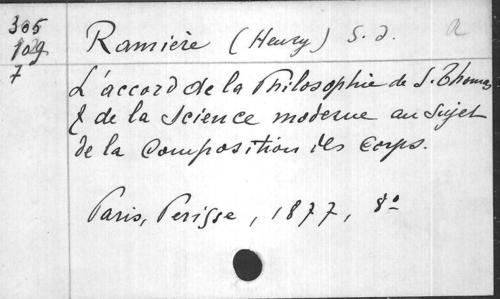 305
109
7
Ramière (Henry) S. J. a
L'accord de la Philosophie de S. Thomas
& de la Science moderne au sujet
de la Composition des Corps.
Paris, Perisse, 1877, 8°